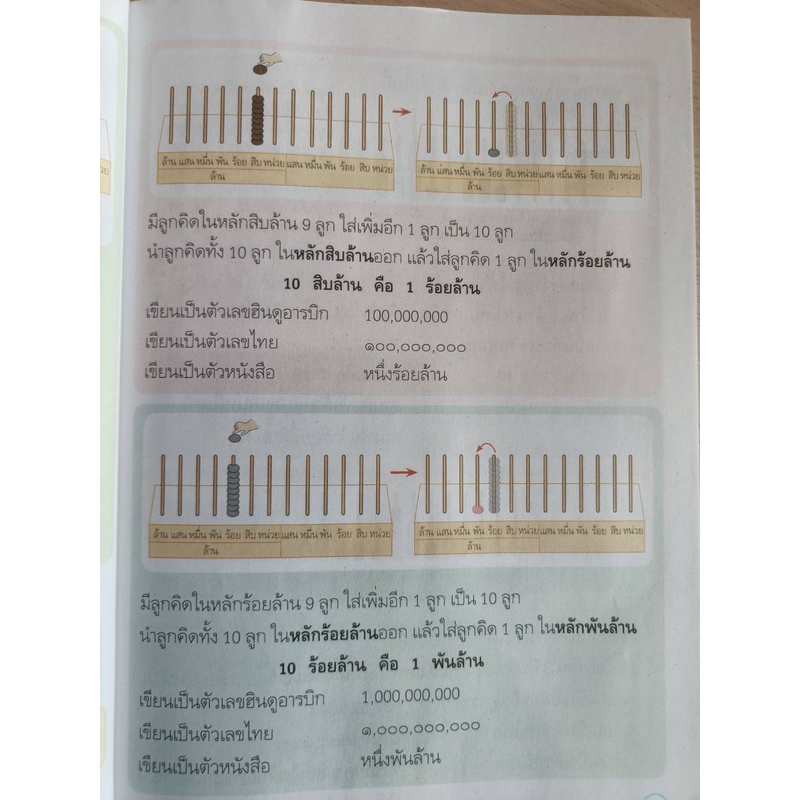 ล้าน แสน หมื่น พัน ร้อย สิบ หน่วย แสน หมื่น พัน ร้อย สิบ หน่วย
ล้าน
ล้าน แสน หมื่น พัน ร้อย สิบ หน่วย แสน หมื่น พัน ร้อย สิบ หน่วย
ล้าน
มีลูกคิดในหลักสิบล้าน 9 ลูก ใส่เพิ่มอีก 1 ลูก เป็น 10 ลูก
นำลูกคิดทั้ง 10 ลูก ในหลักสิบล้านออก แล้วใส่ลูกคิด 1 ลูก ในหลักร้อยล้าน
10 สิบล้าน คือ 1 ร้อยล้าน
เขียนเป็นตัวเลขฮินดูอารบิก 100,000,000
เขียนเป็นตัวเลขไทย ๑๐๐,๐๐๐,๐๐๐
เขียนเป็นตัวหนังสือ หนึ่งร้อยล้าน
ล้าน แสน หมื่น พัน ร้อย สิบ หน่วย แสน หมื่น พัน ร้อย สิบ หน่วย
ล้าน
ล้าน แสน หมื่น พัน ร้อย สิบ หน่วย แสน หมื่น พัน ร้อย สิบ หน่วย
ล้าน
มีลูกคิดในหลักร้อยล้าน 9 ลูก ใส่เพิ่มอีก 1 ลูก เป็น 10 ลูก
นำลูกคิดทั้ง 10 ลูก ในหลักร้อยล้านออก แล้วใส่ลูกคิด 1 ลูก ในหลักพันล้าน
10 ร้อยล้าน คือ 1 พันล้าน
เขียนเป็นตัวเลขฮินดูอารบิก 1,000,000,000
เขียนเป็นตัวเลขไทย ๑,๐๐๐,๐๐๐,๐๐๐
เขียนเป็นตัวหนังสือ หนึ่งพันล้าน